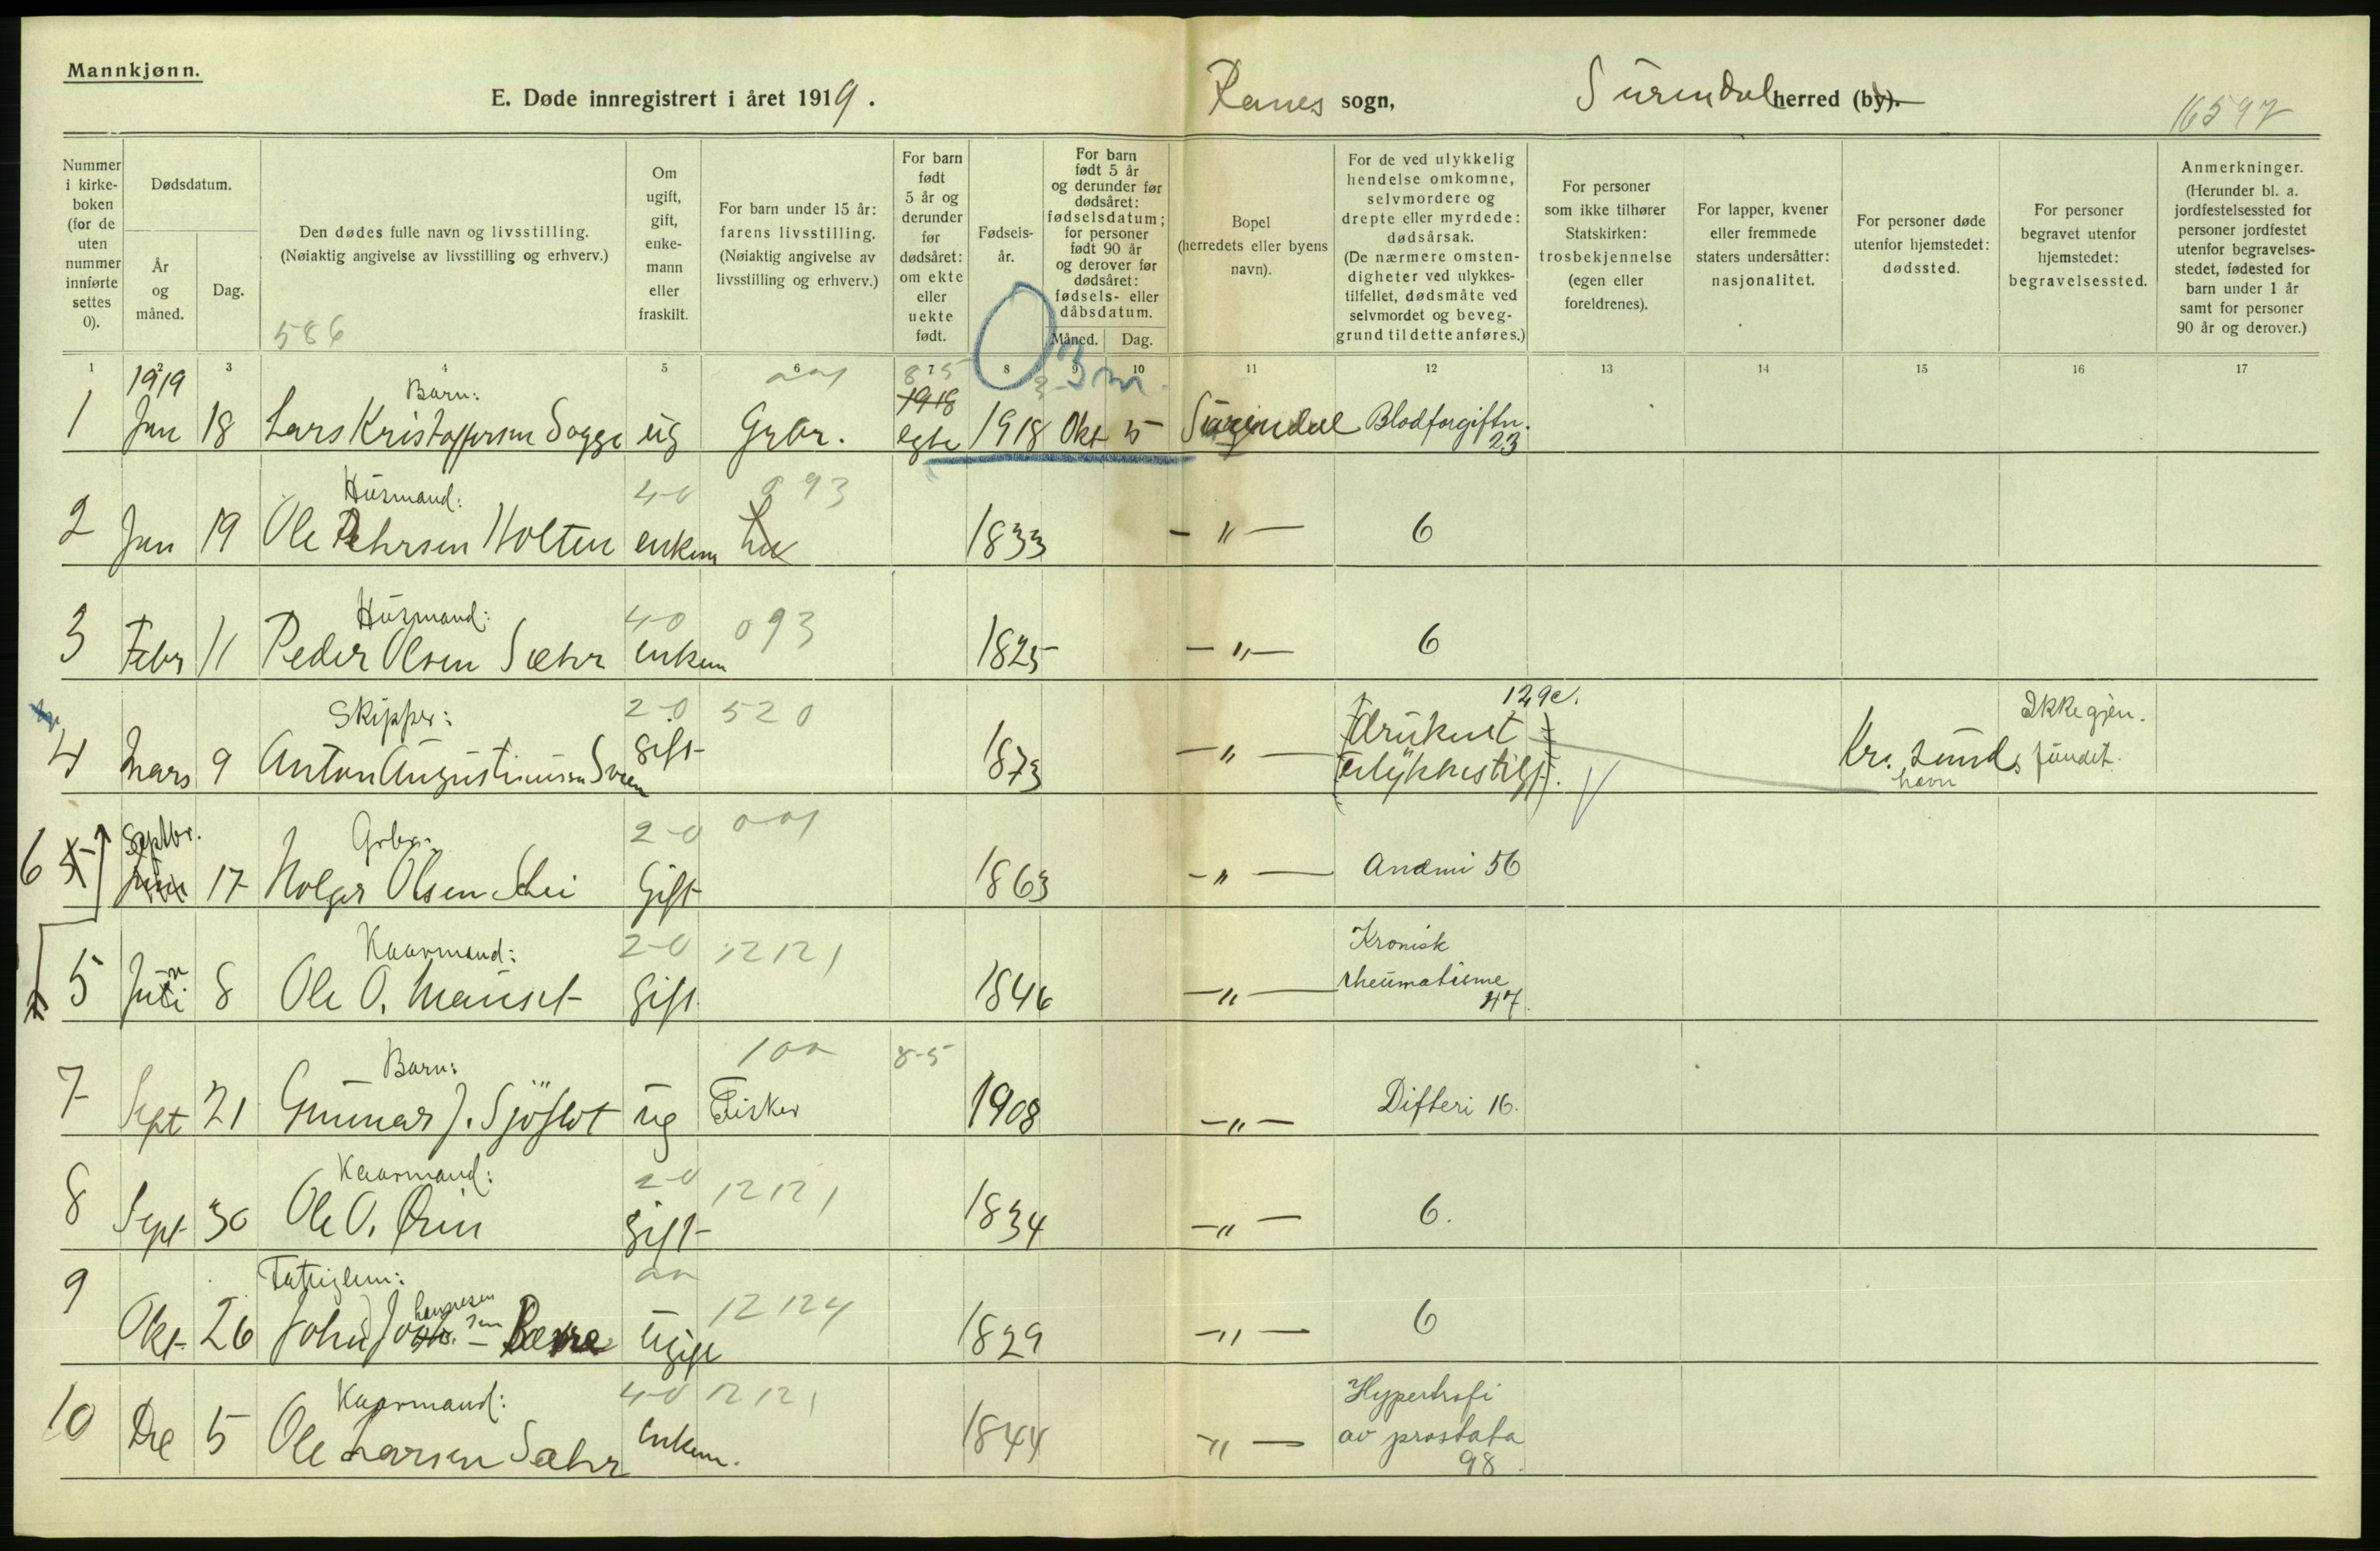 Mannkjønn.
E. Døde innregistrert i året 1919.
Ranes sogn,
Surendal herred (by).
16597
Nummer i kirke-boken (for de uten nummer innførte settes 0).
Dødsdatum.
År og måned.
Dag.
Den dødes fulle navn og livsstilling.
(Nøiaktig angivelse av livsstilling og erhverv.)
586
Om ugift, gift, enke-mann eller fraskilt.
For barn under 15 år: farens livsstilling.
(Nøiaktig angivelse av livsstilling og erhverv.)
For barn født 5 år og derunder før dødsåret: om ekte eller uekte født.
Fødsels-år.
For barn født 5 år og derunder før dødsåret: fødselsdatum; for personer født 90 år og derover før dødsåret: fødsels- eller dåbsdatum.
Måned.
Dag.
Bopel (herredets eller byens navn).
For de ved ulykkelig hendelse omkomne, selvmordere og drepte eller myrdede: dødsårsak.
(De nærmere omsten-digheter ved ulykkes-tilfellet, dødsmåte ved selvmordet og beveg-grund til dette anføres.)
For personer som ikke tilhører Statskirken: trosbekjennelse (egen eller foreldrenes).
For lapper, kvener eller fremmede staters undersåtter: nasjonalitet.
For personer døde utenfor hjemstedet: dødssted.
For personer begravet utenfor hjemstedet: begravelsessted.
Anmerkninger.
(Herunder bl. a. jordfestelsessted for personer jordfestet utenfor begravelses-stedet, fødested for barn under 1 år samt for personer 90 år og derover.)
1 2 3 4 5 6 7 8 9 10 11 12 13 14 15 16 17
1919 Barn: 001 85 0 3 m
1 Jan 18 Lars Kristoffersen Sogge ug Grbr. 1918 egte 1918 Okt 5 Surendal Blodforgiftn. 23
Husmand: 4-0 093
2 Jan 19 Ole Pehrsen Holten enkem 1833 - " - 6
Husmand: 4-0 093
3 Febr 11 Peder Olsen Sæter enkem 1825 - " - 6
Skipper: 2-0 520 129e. Ikke gjen-
4 Mars 9 Anton Augustinussen gift 1873 - " - druknet (ulykkestilf). Kr.sunds havn fundet.
Septbr. Grbr. 2-0 001
6 5 17 Holger Olsen Stei Gift 1863 - " - Anæmi 56
Kaarmand: 2-0 12121
5 Juni 8 Ole O. Mauset Gift 1846 - " - Kronisk rheumatisme 47.
Barn: 100 8-5
7 Sept 21 Gunnar J. Sjöflot ug Fisker 1908 - " - Difteri 16.
Kaarmand: 2-0 12121
8 Sept 30 Ole O. Øien gift 1834 - " - 6.
Fattiglem: 00 12124
9 Okt 26 John Johannesen Bævre ugift 1829 - " - 6
Kaarmand: 4-0 12121
10 De 5 Ole Larsen Sæter Enkem. 1844 - " - Hypertrofi av prostata 98.